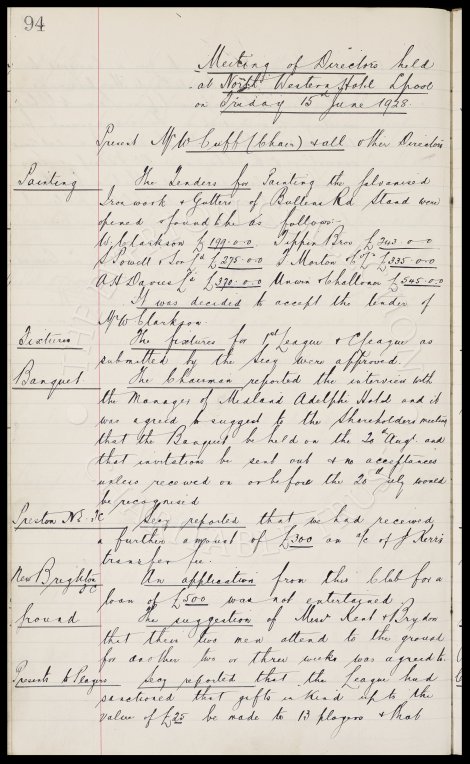 94
Meeting of Directors held
at North Western Hotel L'pool
on Friday 15th June 1928.
Present Mr W Cuff (Chair) & all other Directors
Painting The Tenders for Painting the Galvanised
Iron work & Gutters of Bullens Rd Stand were
opened & found to be as follows:-
W. Clarkson £199-0-0 Tippin Bros £243-0-0
S Powell & Son Ltd £275-0-0 T Morton & Co Ltd £335-0-0
A H Davies Ltd £370-0-0 Unwin & Challoner £545-0-0
It was decided to accept the tender of
Mr W Clarkson.
Fixtures The fixtures for 1st League & C. League as
submitted by the Secy were approved.
Banquet The Chairman reported the interview with
the Manager of Midland Adelphi Hotel and it
was agreed to suggest to the Shareholders meeting
that the Banquet be held on the 20th Augt. and
that invitations be sent out & no acceptances
unless received on or before the 20th July would
be recognised
Preston N.E. FC Secy reported that we had received
a further amount of £300 on a/c of J Kerr's
transfer fee.
New Brighton FC An application from this Club for a
loan of £500 was not entertained
Ground The suggestion of Messrs Kent & Brydon
that their two men attend to the ground
for another two or three weeks was agreed to.
Presents to Players Secy reported that the League had
sanctioned that gifts in kind up to the
value of £25 be made to 13 players & that